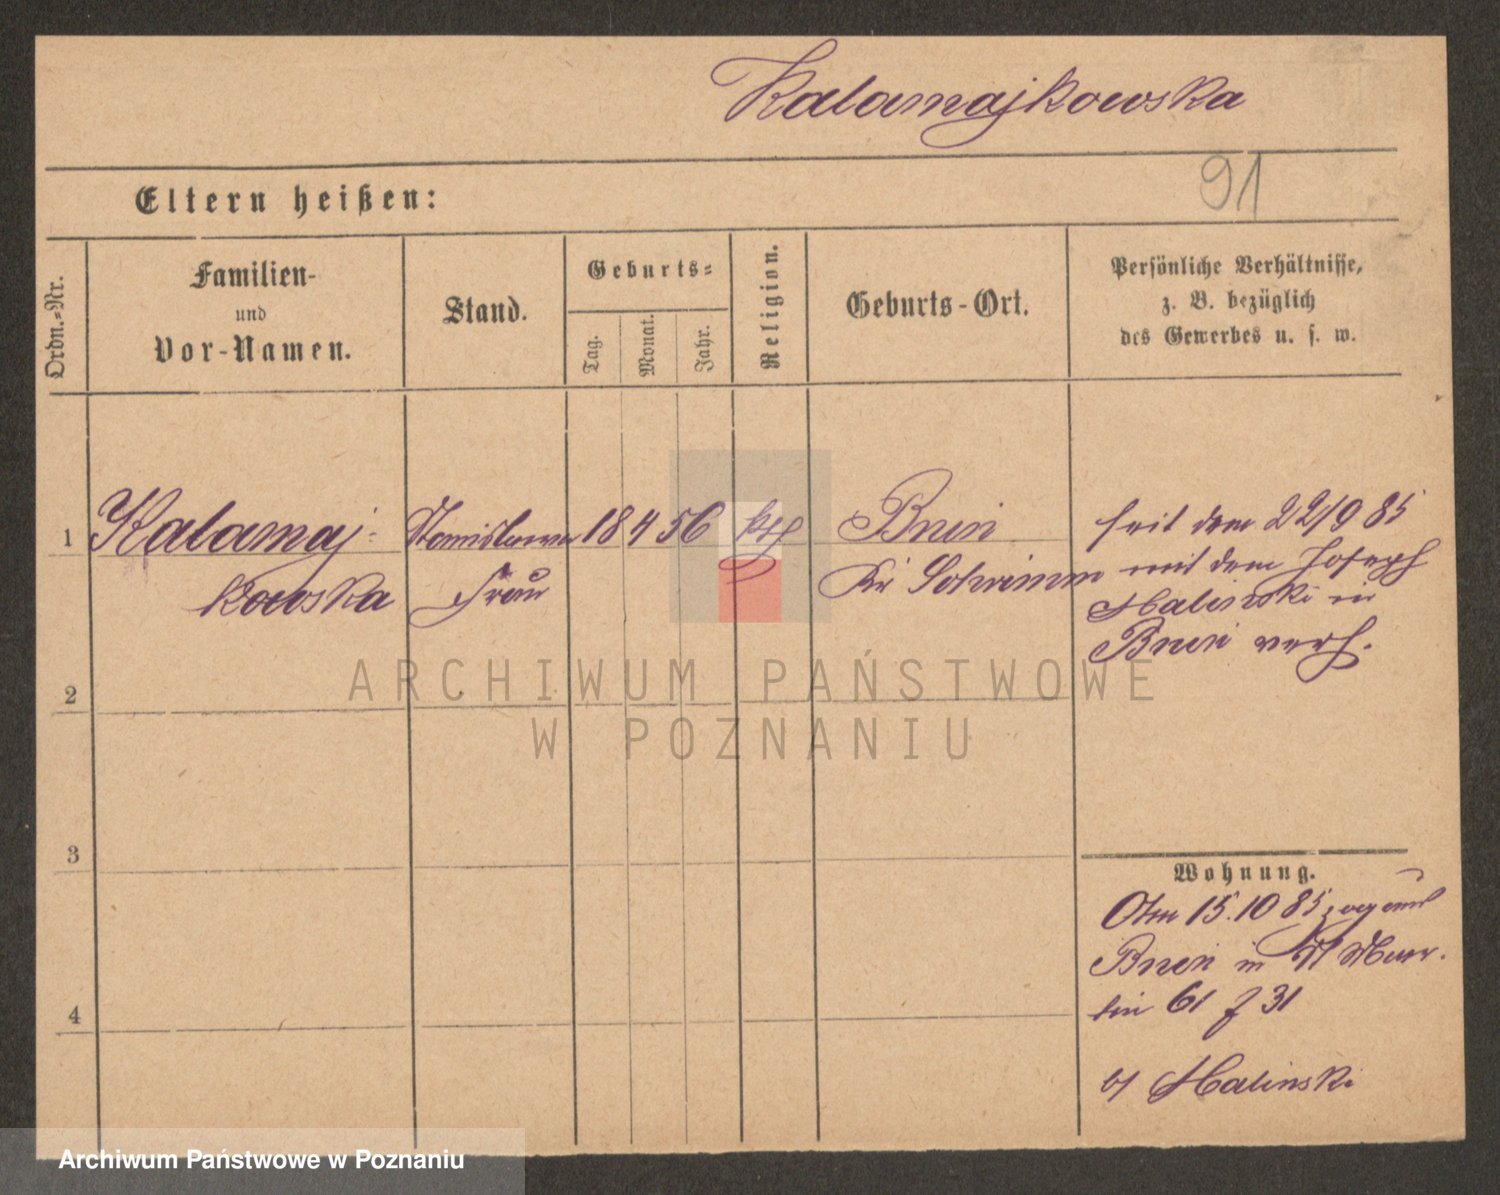 Kalamajkowska
91
Eltern heißen:
Ordn.-Nr.
Familien-
und
Vor-Namen.
Stand.
Geburts-
Tag.
Monat.
Jahr.
Religion.
Geburts-Ort.
Persönliche Verhältnisse,
z. B. bezüglich
des Gewerbes u. s. w.
1
Kalamaj-
kowska
Stanislawa
Frau
18 4 56
kth
Bnin
Kr Schrimm
seit dem 22/9 85
mit dem Joseph
Malinski in
Bnin verh.
2
3
4
Wohnung.
15.10 85 zog aus
Bnin in
tin 61 f 31
b/ Malinski
ARCHIWUM PAŃSTWOWE
W POZNANIU
Archiwum Państwowe w Poznaniu